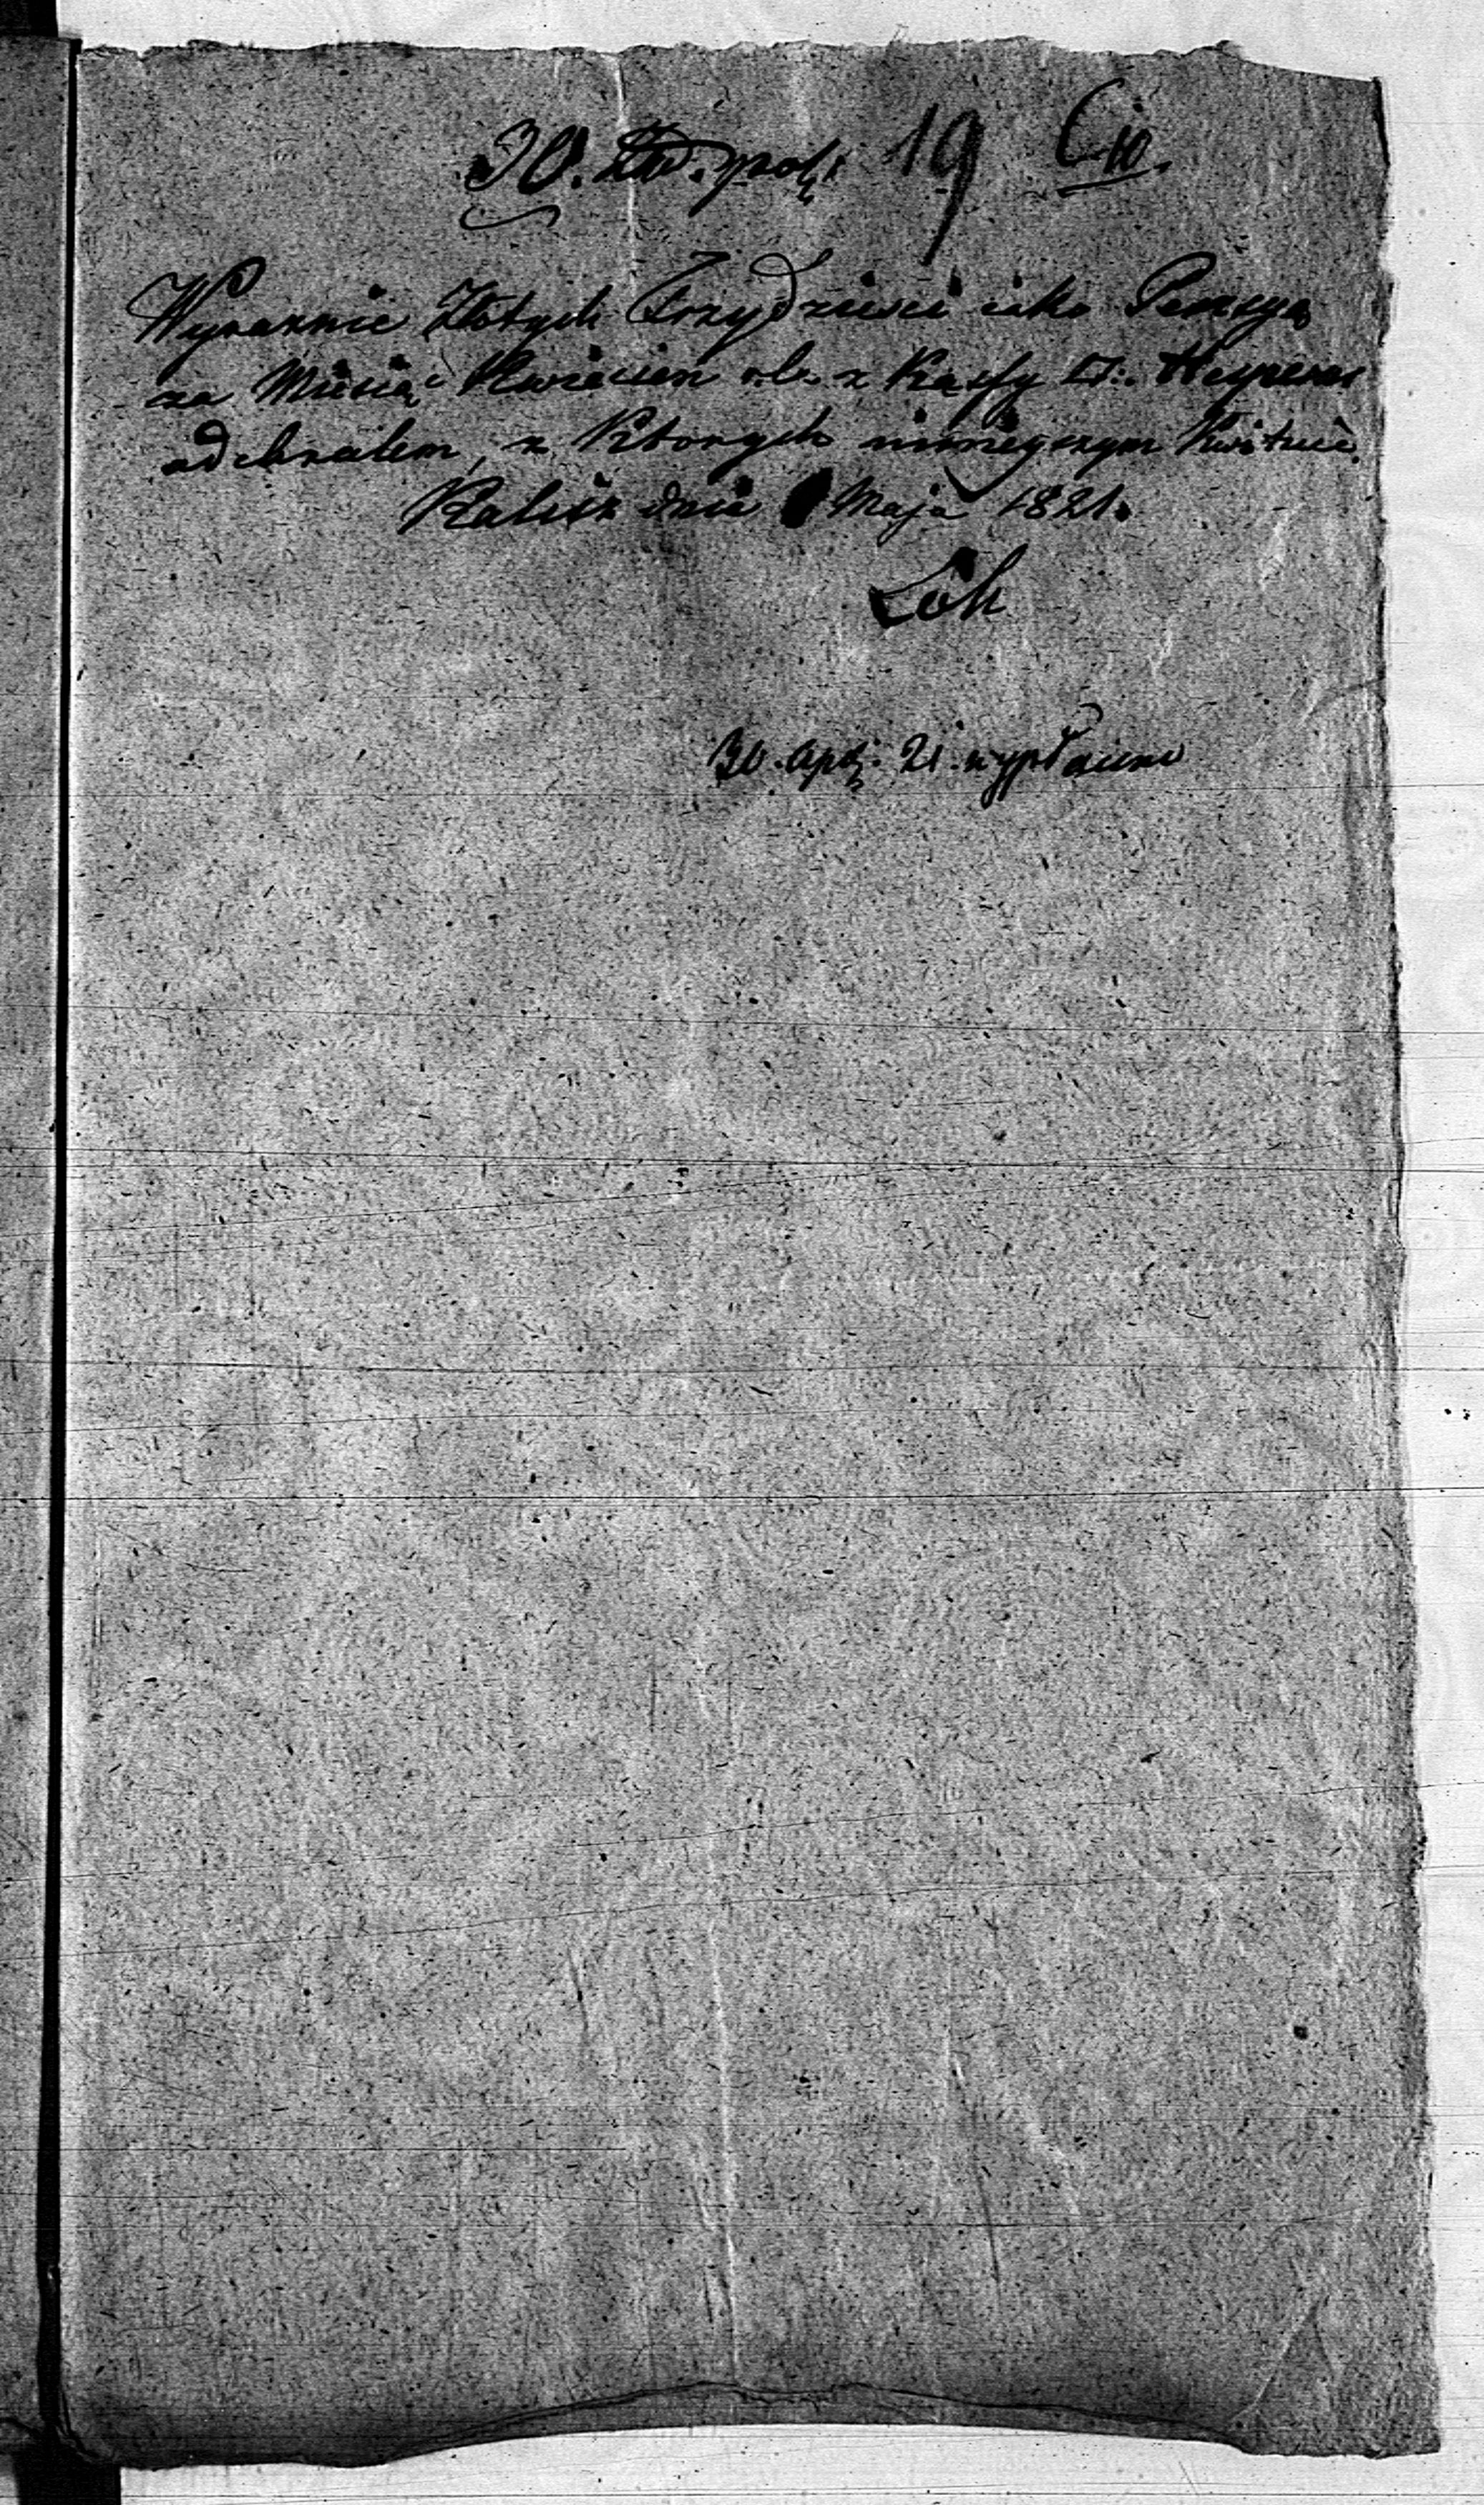 30. Zło. pol: 19
Wyraznie Złotych Trzydziesci iako Pensyą
za Miesiąc Kwiecien r.b. z Kassy
odebrałem, z Ktorych ninieyszym Kwituie.
Kalisz dnia Maja 1821.
Löh
30. Apr: 21. wypłacono